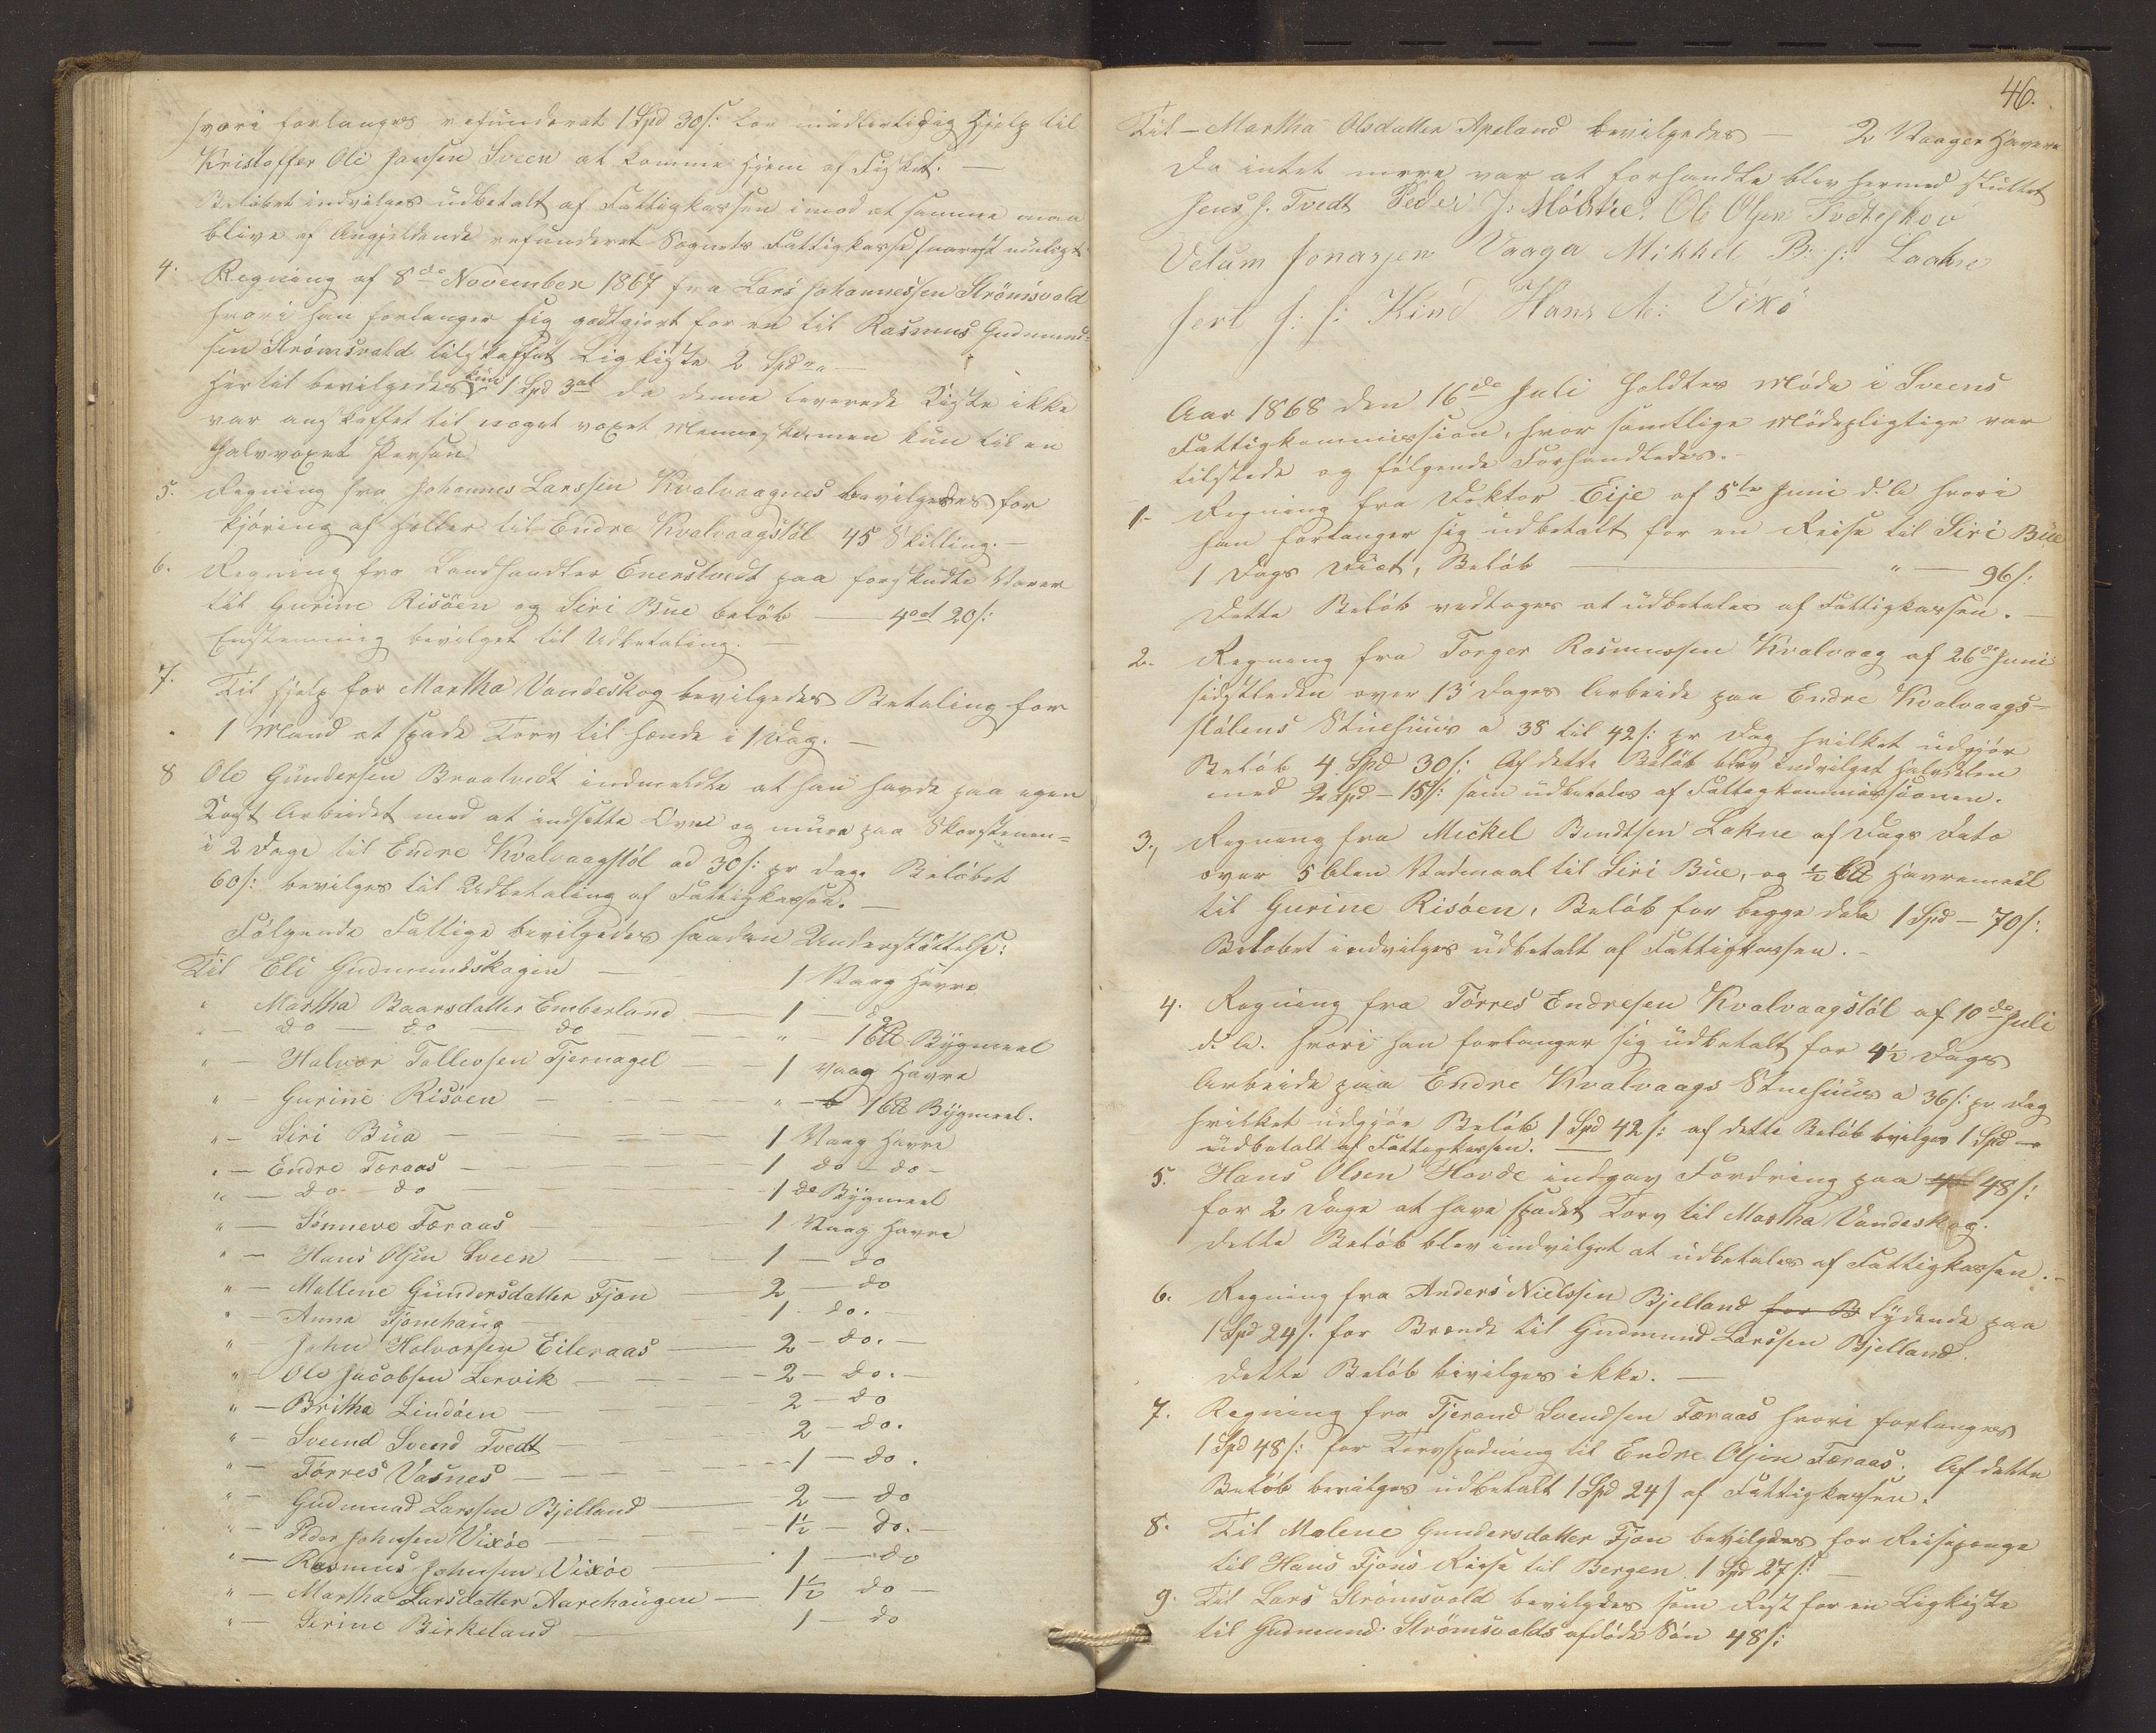 hvori forlanges refunderet 1 Spd 30 s: for midlertidig Hjelp til
Kristoffer Ole Jansen Sveen at komme hjem af Fisket. —
Beløbet indvilges udbetalt af Fattigkassen imod at samme maa
blive af Angjeldende refunderet Sognets Fattigkasse snarest muligt
4. Regning af 8de November 1867 fra Lars Johannessen Strömsvold
hvori han forlanger sig godtgjort for en til Rasmus Gudmund-
sen Strømsvold tilskaffet Ligkiste 2 Spd —
Hertil bevilgedes kun 1 Spd 3 ort da denne leverede Kiste ikke
var anskaffet til noget voxet Menneske, men kun til en
halvvoxen Person
5. Regning fra Johannes Larssen Kvalvaagnes bevilgedes for
Kjøring af Heller til Endre Kvalvaagstöl 45 Skilling. —
6. Regning fra Landhandler Enerstvedt paa forskudte Varer
til Gurine Risöen og Siri Bue beløb — 4 ort 20 s:
Enstemmig bevilget til Udbetaling. —
7. Til Hjelp for Martha Vandeskog bevilgedes Betaling for
1 Mand at spade Torv til hende i 1 Dag. —
8 Ole Gundersen Braatvedt indmeldte at han havde paa egen
Kost Arbeidet med at indsette Ovne og mure paa Skorstenen
i 2 Dage til Endre Kvalvaagstöl ad 30 s: pr Dag. Beløbet
60 s: bevilges til Udbetaling af Fattigkassen. —
Følgende Fattige bevilgedes saadan Understøttelse:
Til Eli Gudmundskagen — 1 Vaag Havre
" Martha Baarsdatter Emberland — 1 — do
" — do — do — do — " — 1 b℔ Bygmeel
" — Halvor Tollevsen Tjernagel — 1 Vaag Havre
" — Gurine Risöen — " — 1 b℔ Bygmeel.
" — Siri Bua — 1 Vaag Havre
" — Endre Færaas — 1 do — do —
" — do — do — 1 do Bygmeel
" — Sönneve Færaas — 1 Vaag Havre
" — Hans Olsen Sveen — 1 — do
" — Mallene Gundersdatter Fjon — 2 — do
" — Anna Tjönehaug — 1 do. —
" — John Halvorsen Eileraas — 2 — do. —
" — Ole Jacobsen Lervik — 2 — do. —
" — Britha Lindöen — 2 — do
" — Sveend Svend Tvedt — 2 — do.
" — Törres Vasnes — 1 — do.
" — Gudmund Larssen Bjelland — 2 — do
" — Peder Johnsen Vixöe — 1½ — do. —
" — Rasmus Johnsen Vixöe — 1 — do
" — Martha Larsdatter Aarehaugen — 1½ do —
" — Serine Birkeland — 1 — do
46.
Til — Martha Olsdatter Apeland bevilgedes — 2 Vaager Havre
Da intet mere var at forhandle blev hermed sluttet
Jens J. Tvedt Peder J: Ole Olsen
Velum Jonassen Vaaga Mikkel B: s: Laakne
J: J: Kind Hans A: Vixö
Aar 1868 den 16de Juli holdtes Møde i Sveens
Fattigkommission, hvor samtlige Mødepligtige var
tilstede og følgende Forhandledes. —
1. Regning fra Doktor Eije af 5te Juni d. A. hvori
han forlanger sig udbetalt for en Reise til Siri Bue
1 Dags Diæt, Beløb — " — 96 s:
Dette Beløb vedtages at udbetales af Fattigkassen. —
2. Regning fra Torger Rasmussen Kvalvaag af 26de Juni
sidstleden over 13 Dages Arbeide paa Endre Kvalvaags-
stølens Stuehuus a 38 til 42 s: pr Dag hvilket udgjør
Beløb 4 Spd 30 s: Af dette Beløb blev indvilget Halvdelen
med 2 Spd — 15 s: som udbetales af Fattigkommissionen.
3., Regning fra Mickel Bendtsen Lakne af Dags Dato
over 5 Alen Vadmaal til Siri Bue, og ½ b℔ Havremeel
til Gurine Risöen, Beløb for begge dele 1 Spd — 70 s:
Beløbet indvilges udbetalt af Fattigkassen. —
4. Regning fra Törres Endresen Kvalvaagstöl af 10de Juli
d. A. hvori han forlanger sig udbetalt for 4½ Dags
Arbeide paa Endre Kvalvaags Stuehuus a 36 s: pr Dag
hvilket udgjør Beløb 1 Spd 42 s: af dette Beløb bevilges 1 Spd —
udbetalt af Fattigkassen. —
5. Hans Olsen Hovde indgav Fordring paa 48 s:
for 2 Dage at have spadet Torv til Martha Vandeskog.
Dette Beløb blev indvilget at udbetales af Fattigkassen. —
6. Regning fra Anders Nielssen Bjelland for B lydende paa
1 Spd 24 s. for Brænde til Gudmund Larssen Bjelland.
Dette Beløb bevilges ikke. —
7. Regning fra Tjerand Svendsen Færaas hvori forlanges
1 Spd 48 s: for Torvspadning til Endre Olsen Færaas. Af dette
Beløb bevilges udbetalt 1 Spd 24 s af Fattigkassen.
8. Til Malene Gundersdatter Fjon bevilgdes for Reisepenge
til Hans Fjons Reise til Bergen 1 Spd 27 s: —
9. Til Lars Strömsvold bevilgdes som Rest for en Ligkiste
til Gudmund Strömsvolds afdöde Sön 48 s: